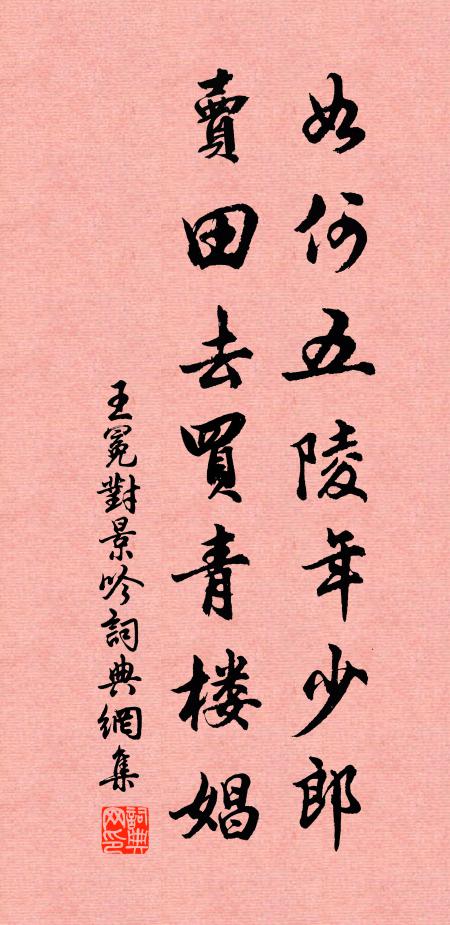 如何五陵年少郎
賣田去買青楼娼
王冕對景吟詞典網集
詞典网印